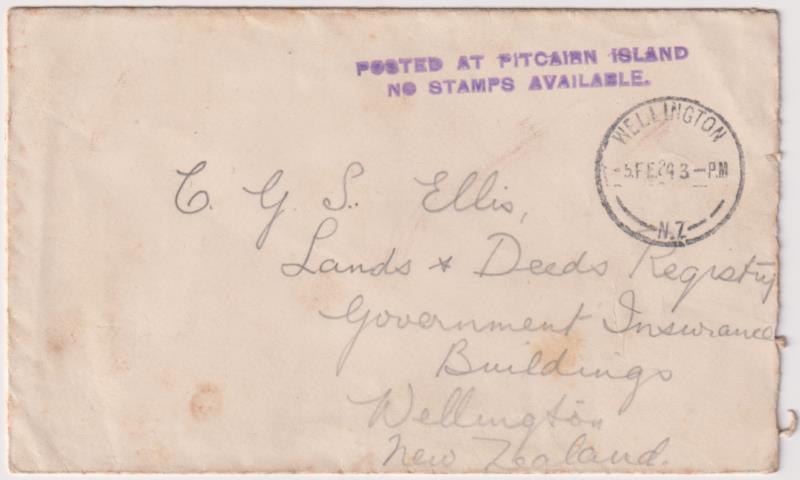 POSTED AT PITCAIRN ISLAND
NO STAMPS AVAILABLE.
WELLINGTON
-5.FE.24 3 -P.M
N.Z
C. G. S. Ellis,
Lands & Deeds Registry
Government Insurance
Buildings
Wellington
New Zealand.